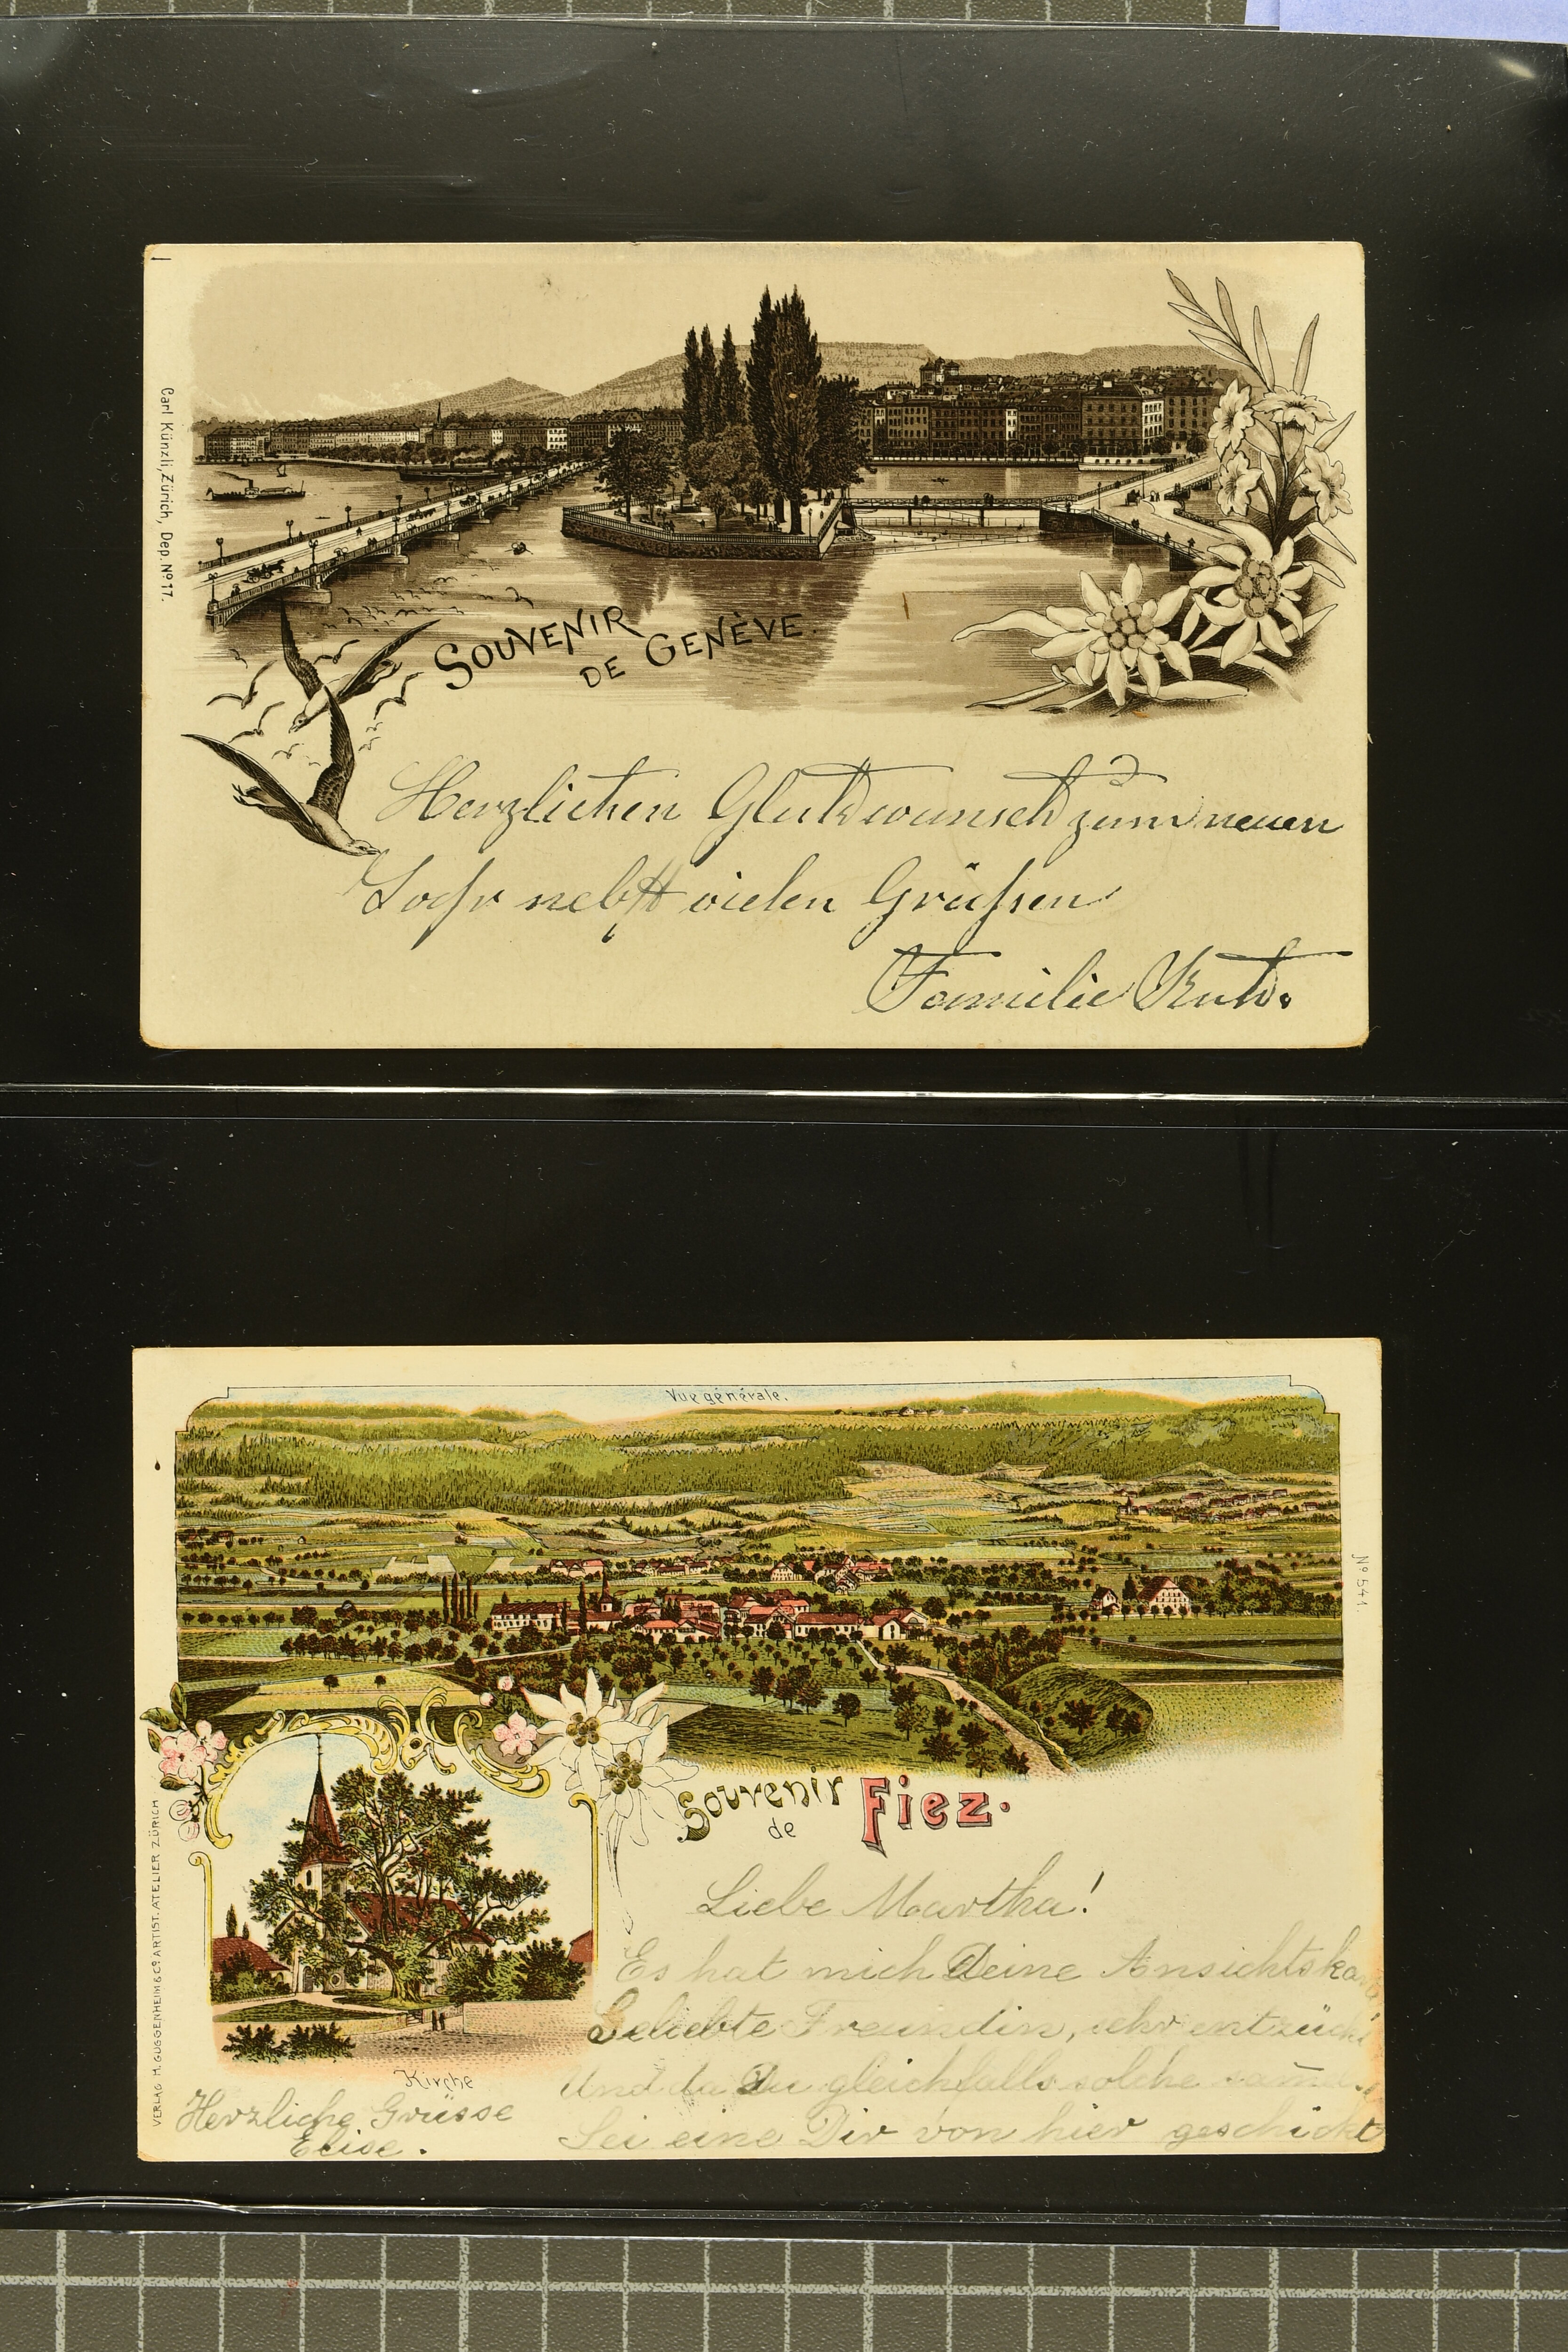 Carl Künzli, Zürich, Dep. Nº 17.
SOUVENIR
DE GENÈVE.
Herzlichen Glückwunsch zum neuen
Jahr nebst vielen Grüßen
Familie
Vue générale.
Nº 541.
Souvenir
de
Fiez.
VERLAG H. GUGGENHEIM & Cº ARTIST. ATELIER ZÜRICH
Kirche
Liebe Martha!
Es hat mich Deine Ansichtskar
Geliebte Freundin, sehr entzückt
Und da Du gleichfalls solche
Sei eine Dir von hier geschickt
Herzliche Grüsse
Elise.